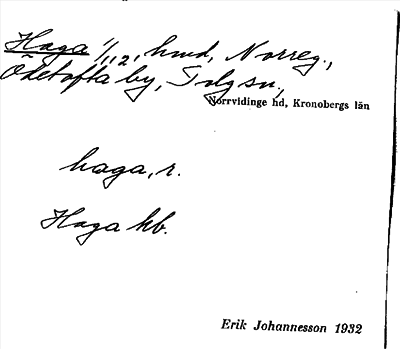 Haga 1/112, hmd, Norreg.,
Ödetofta by, Tolg sn,
Norrvidinge hd, Kronobergs län
haga, r.
Haga kb.
Erik Johannesson 1932